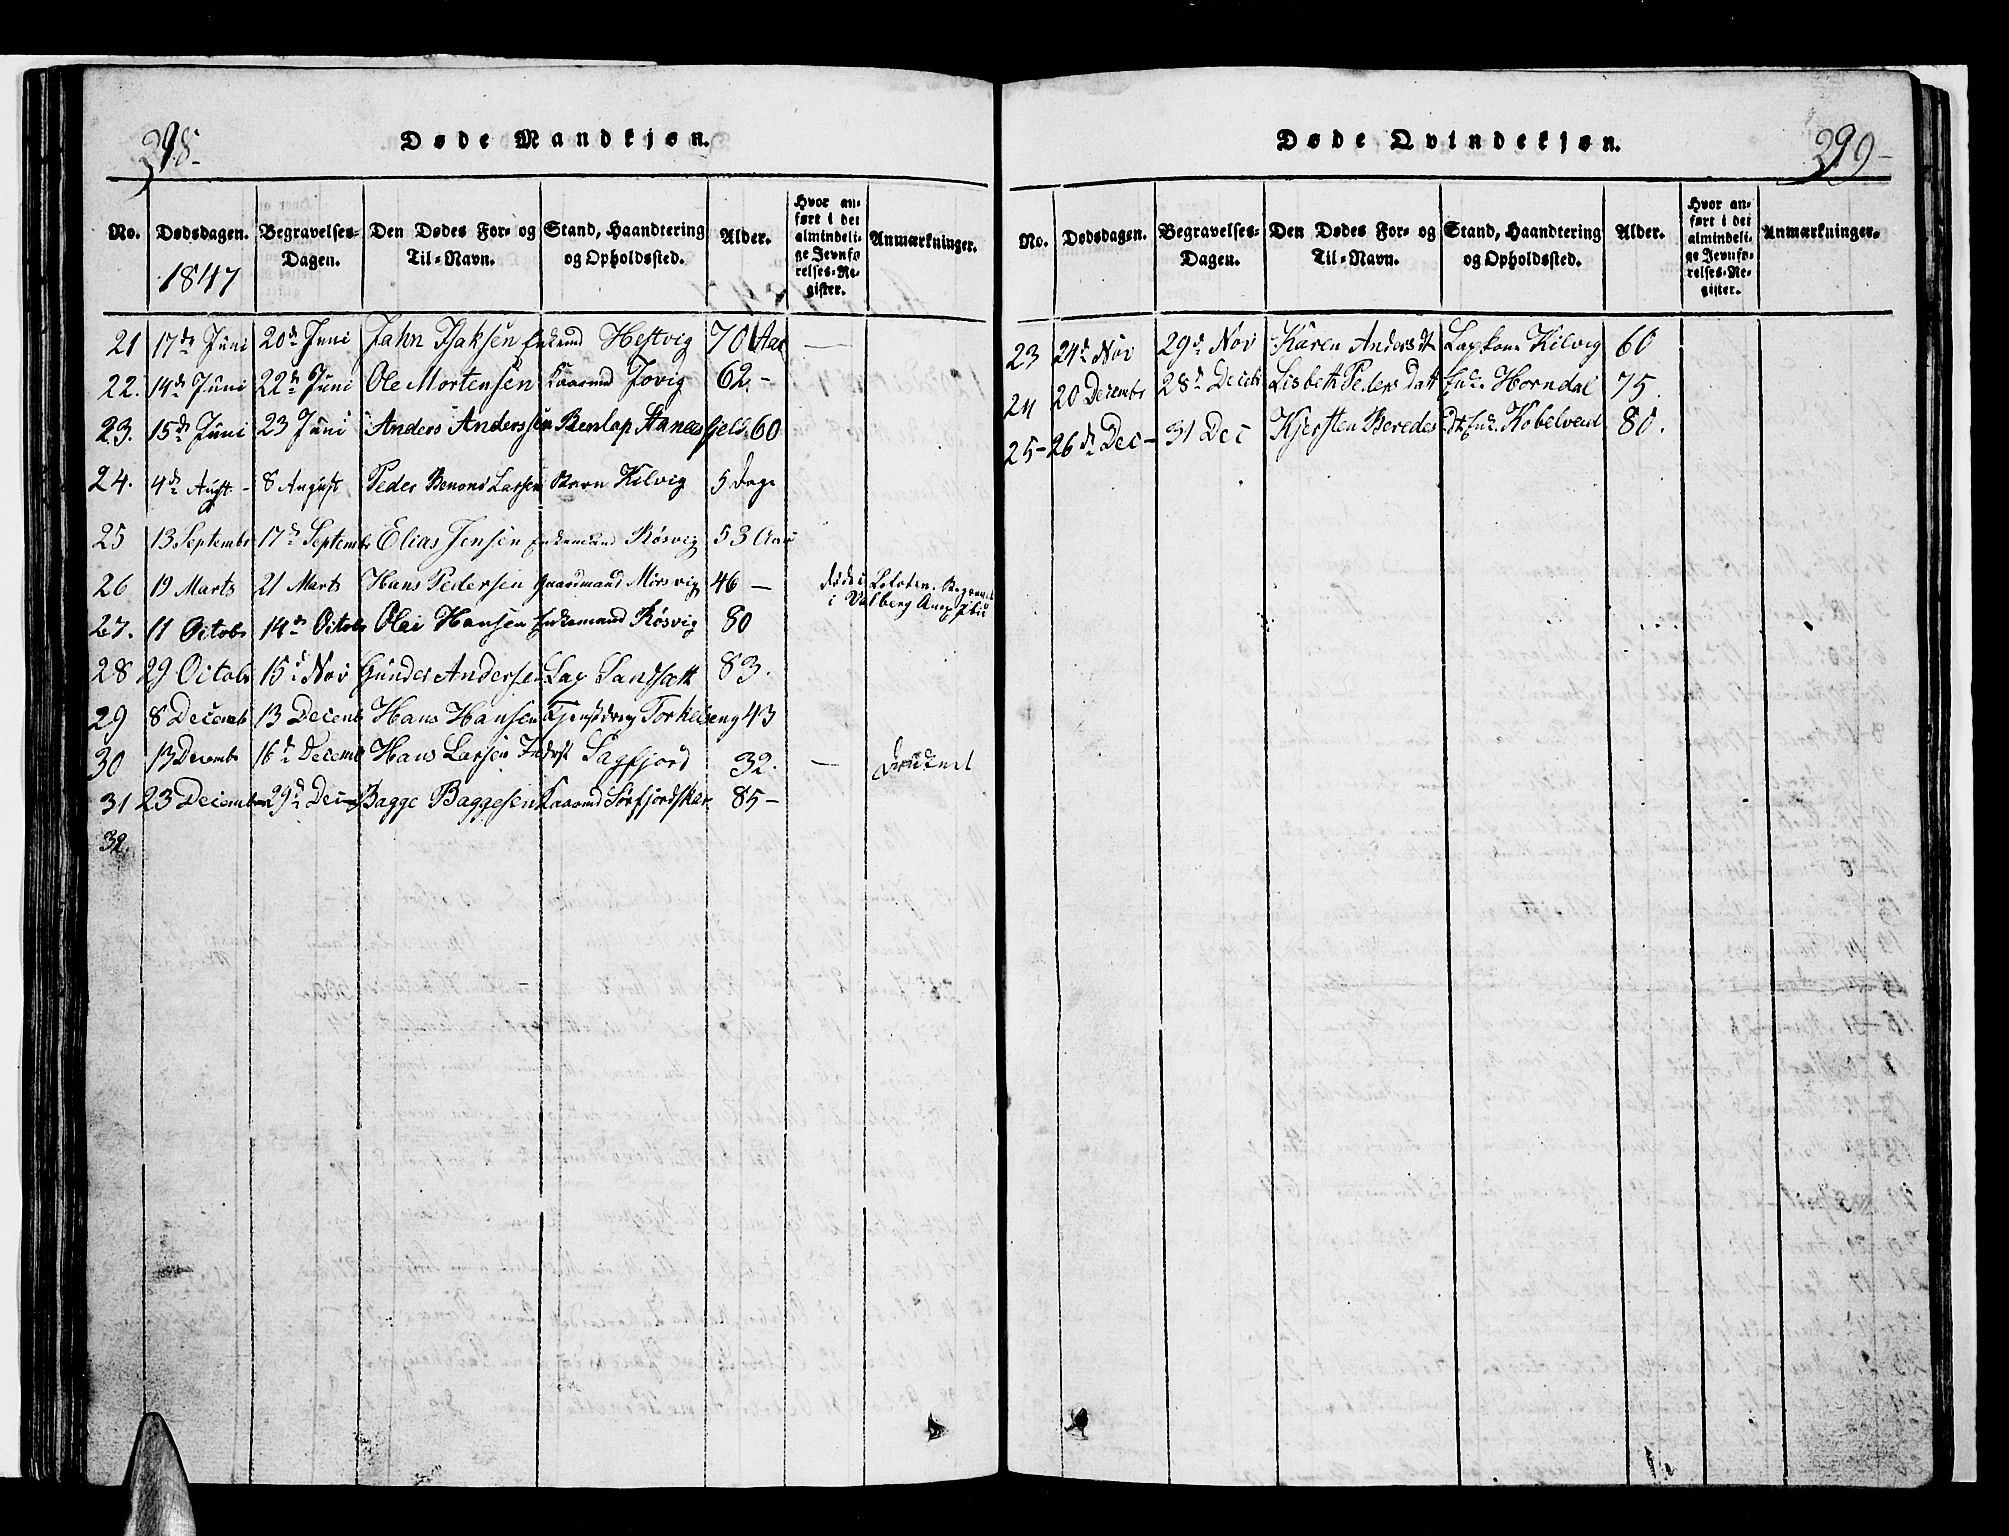 398-
Døde Mandkjøn.
No. Dødsdagen. Begravelses-Dagen. Den Dødes For- og Til-Navn. Stand, Haandtering og Opholdssted. Alder. Hvor anført i det almindelige Jevnførelses-Register. Anmærkninger.
1847
21 17de Juni 20de Juni Jahn Isaksen Enkemd Hestvig 70 Aar —
22. 14de Juni 22de Juni Ole Mortensen Kaarmd Jovig 62.-
23. 15de Juni 23 Juni Anders Anderssen Renlap 60
24. 4de Augt - 8 August Peder Benoni Larsen Barn Kilvig 5 Dage
25 13 Septembr 17de Septembr Elias Jensen Enkemand Røsvig 53 Aar
26 19 Marts 21 Marts Hans Pedersen Gaardmand Mørsvig 46 — døde i Lofoten. Begravet
i Valberg
27. 11 Octobr 14de Octobr Olai Hansen Enkemand Røsvig 80
28 29 Octobr 15de Nov Gunder Andersen Lap 83.
29 8 Decemb 13 Decemb Hans Hansen Tjenstdreng Torkelseng 43
30 13 Decembr 16de Decemb Hans Larsen Inderst Sagfjord 32. — Druknet
31 23 Decembr 29de Dec Bagge Baggesen Kaarmd Sørfjordskar 85-
32.
Døde Qvindekjøn.
399-
No. Dødsdagen. Begravelses-Dagen. Den Dødes For- og Til-Navn. Stand, Haandtering og Opholdssted. Alder. Hvor anført i det almindelige Jevnførelses-Register. Anmærkninger.
23 24de Nov 29de Nov Karen Andersdt Lapkone Kilvig 60
24 20 Decembr 28de Decebr Lisbeth Pedersdatt Enke Horndal 75.
25- 26de Dec- 31 Dec Kjersten Beredes dt Enke Kobelvend 80.